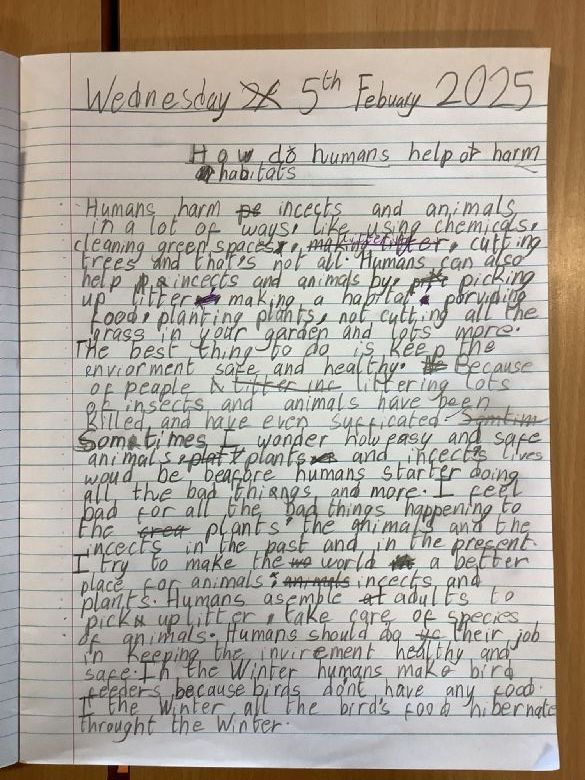 Wednesday 5th Febuary 2025
How do humans help or harm
habitats
Humans harm incects and animals
in a lot of ways, like using chemicals,
cleaning green spaces, littering, cutting
trees and that's not all. Humans can also
help incects and animals by, picking
up litter making a habitat, porviding
food, planting plants, not cutting all the
grass in your garden and lots more.
The best thing to do is keep the
enviorment safe and healthy. Because
of peaple littering lots
of insects and animals have been
killed, and have even sufficated.
Somtimes I wonder how easy and safe
animals, plants and incects lives
woud be beafore humans starter doing
all the bad things and more. I feel
bad for all the bad things happening to
the plants, the animals and the
incects in the past and in the present.
I try to make the world a better
place for animals, incects and
plants. Humans asemble adults to
pick up litter, take care of species
of animals. Humans should do their job
in keeping the invirement healthy and
safe. In the Winter humans make bird
feeders because birds don't have any food.
I the Winter all the bird's food hibernate
throught the Winter.